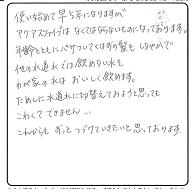 使い始めて早5年になりますが
アクアスライブはなくてはならないものになっております。
年齢とともにパサついてくはずの髪も しなやかで
他の水道水では飲めない水も
わが家の水は おいしく飲めます。
ためしに水道水に切替えてみようと思っても
こわくて できません...
これからも ずっと つづけていきたいと思っております